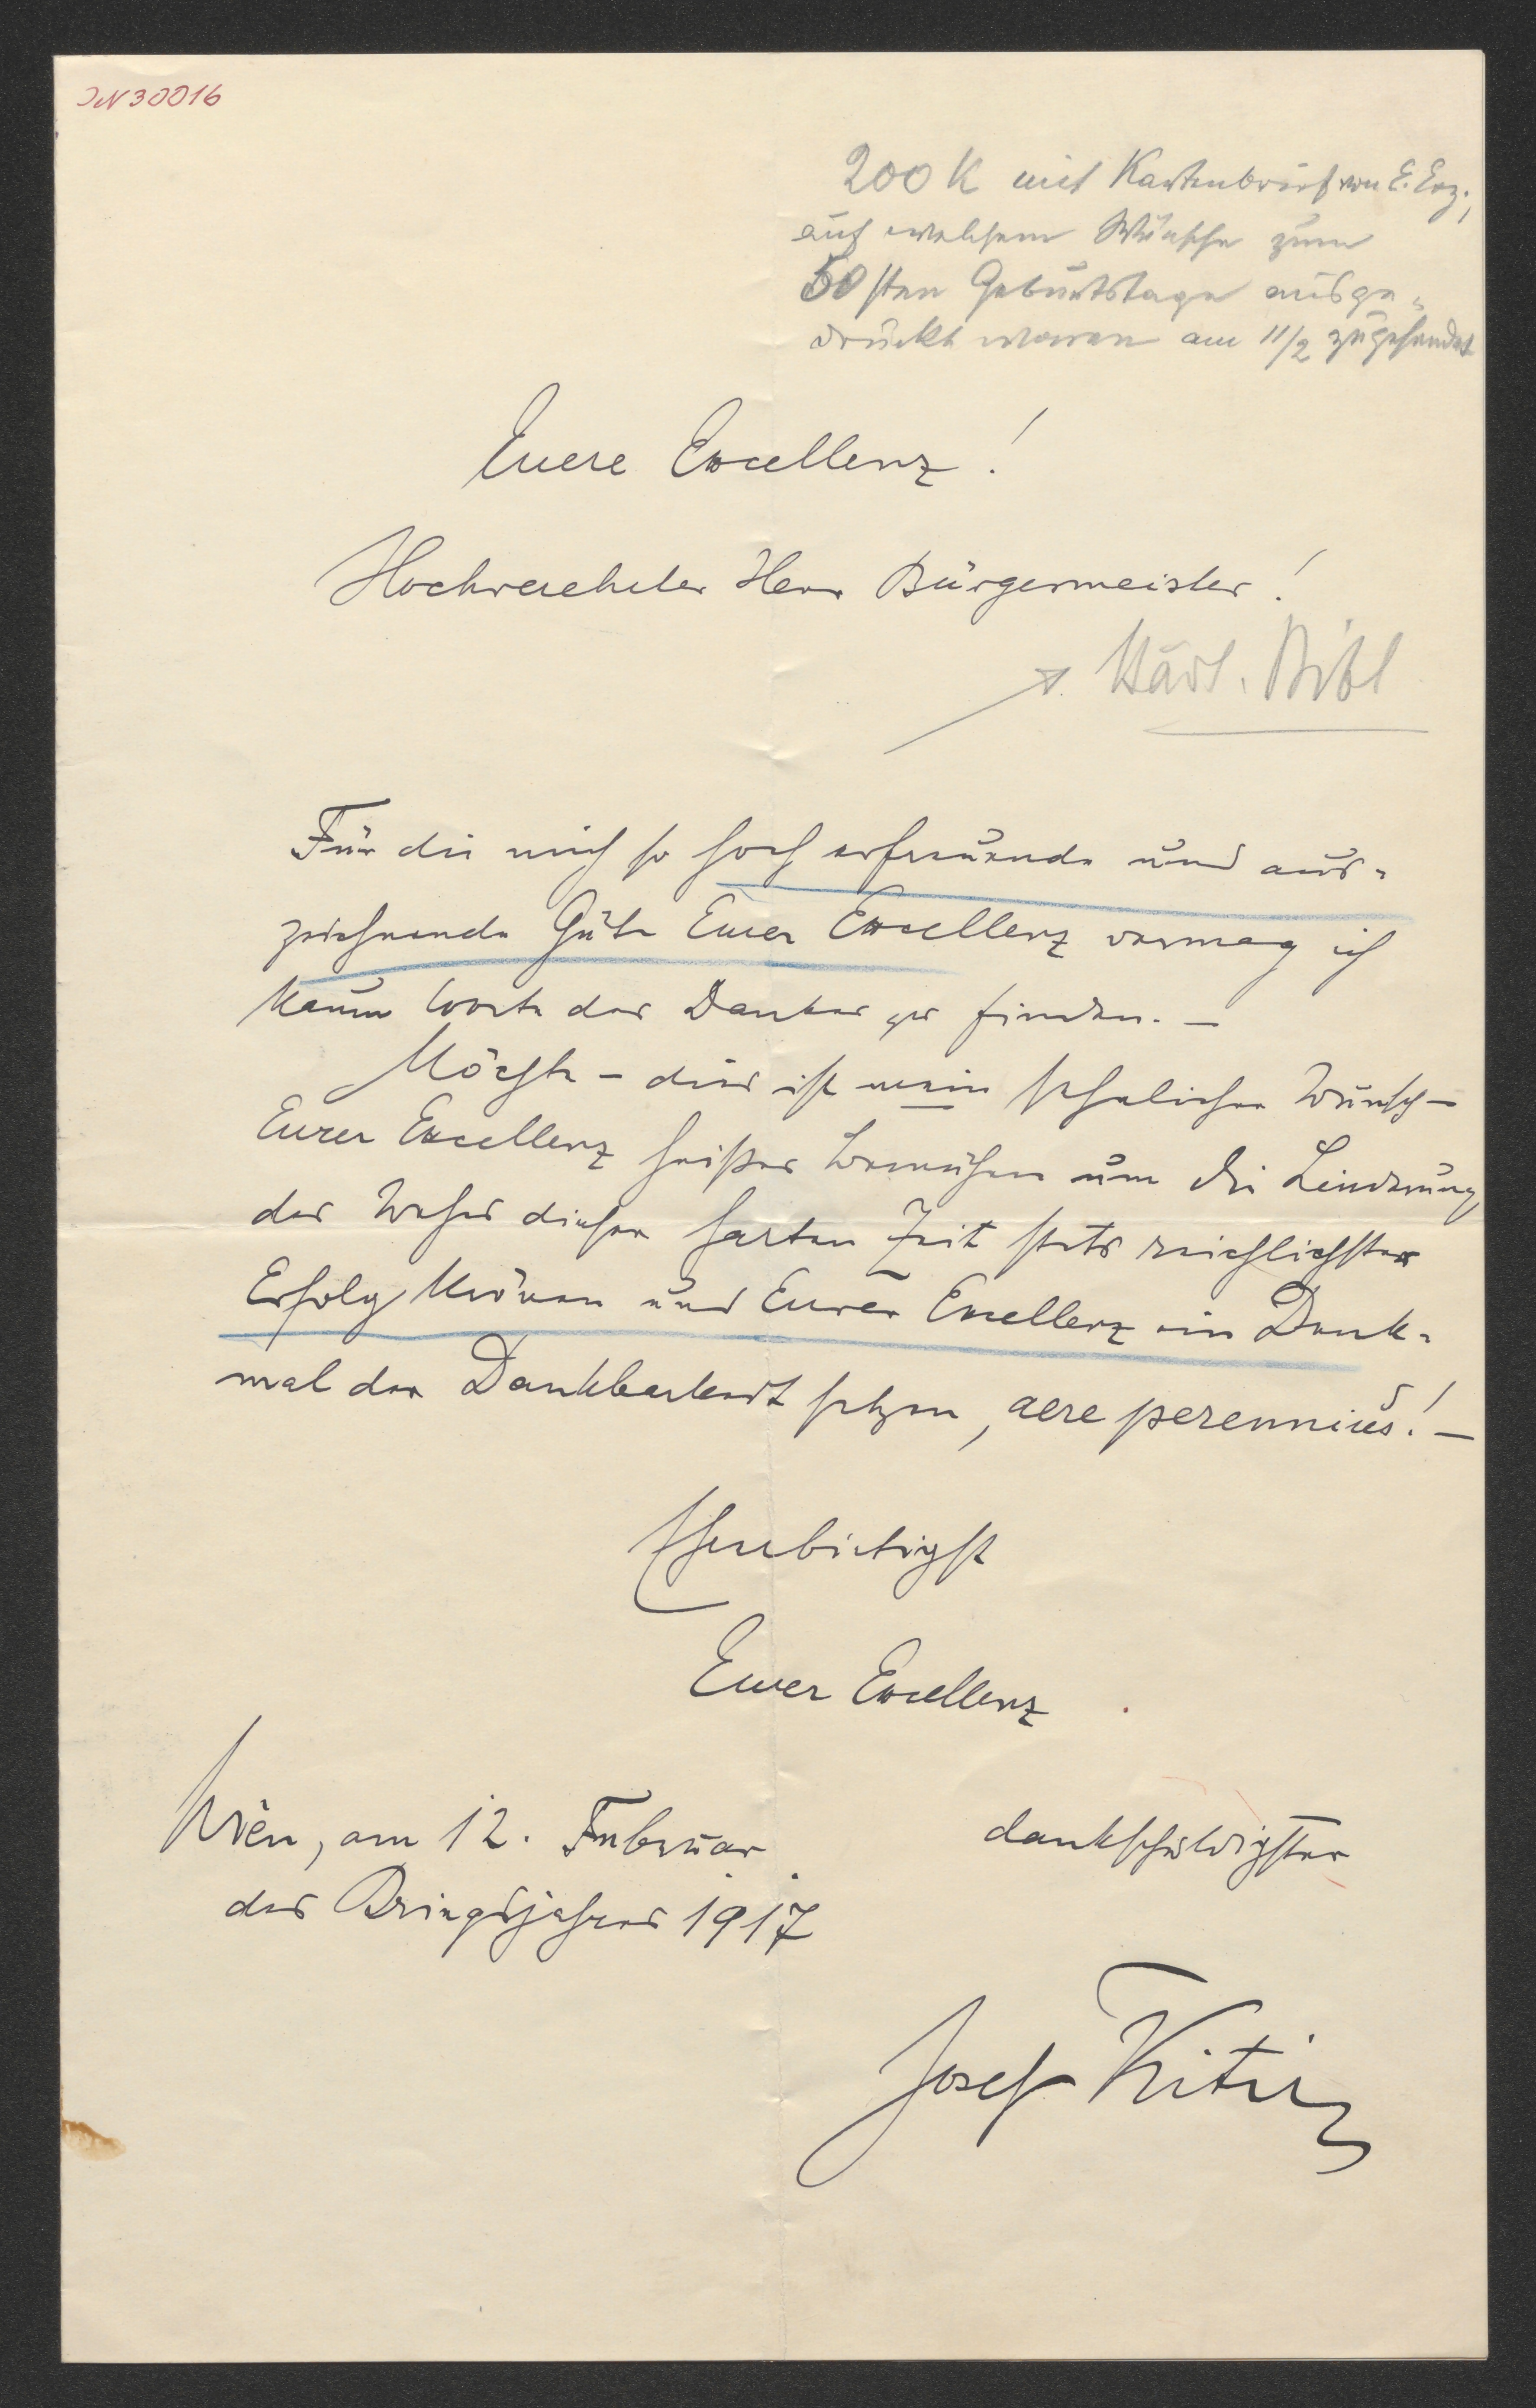 JN 30016
200 K mit Kartenbrief von E. Exz.,
auf welchem Wünsche zum
50sten Geburtstage ausge-
drückt waren am 11/2 zugesendet
Euere Excellenz!
Hochverehrter Herr Bürgermeister!
Städt. Bibl
Für die mich so hoch erfreuende und aus-
zeichnende Güte Eurer Excellenz vermag ich
kaum Worte des Dankes zu finden. –
Möchte – dies ist mein sehnlicher Wunsch –
Eurer Excellenz heißes Bemühen um die Linderung
des Wehes dieser harten Zeit stets reichlichster
Erfolg krönen und Eurer Excellenz ein Denk-
mal der Dankbarkeit setzen, aere perennius! –
Ehrerbietigst
Euer Excellenz
Wien, am 12. Februar
dankschuldigster
des Kriegsjahres 1917
Josef